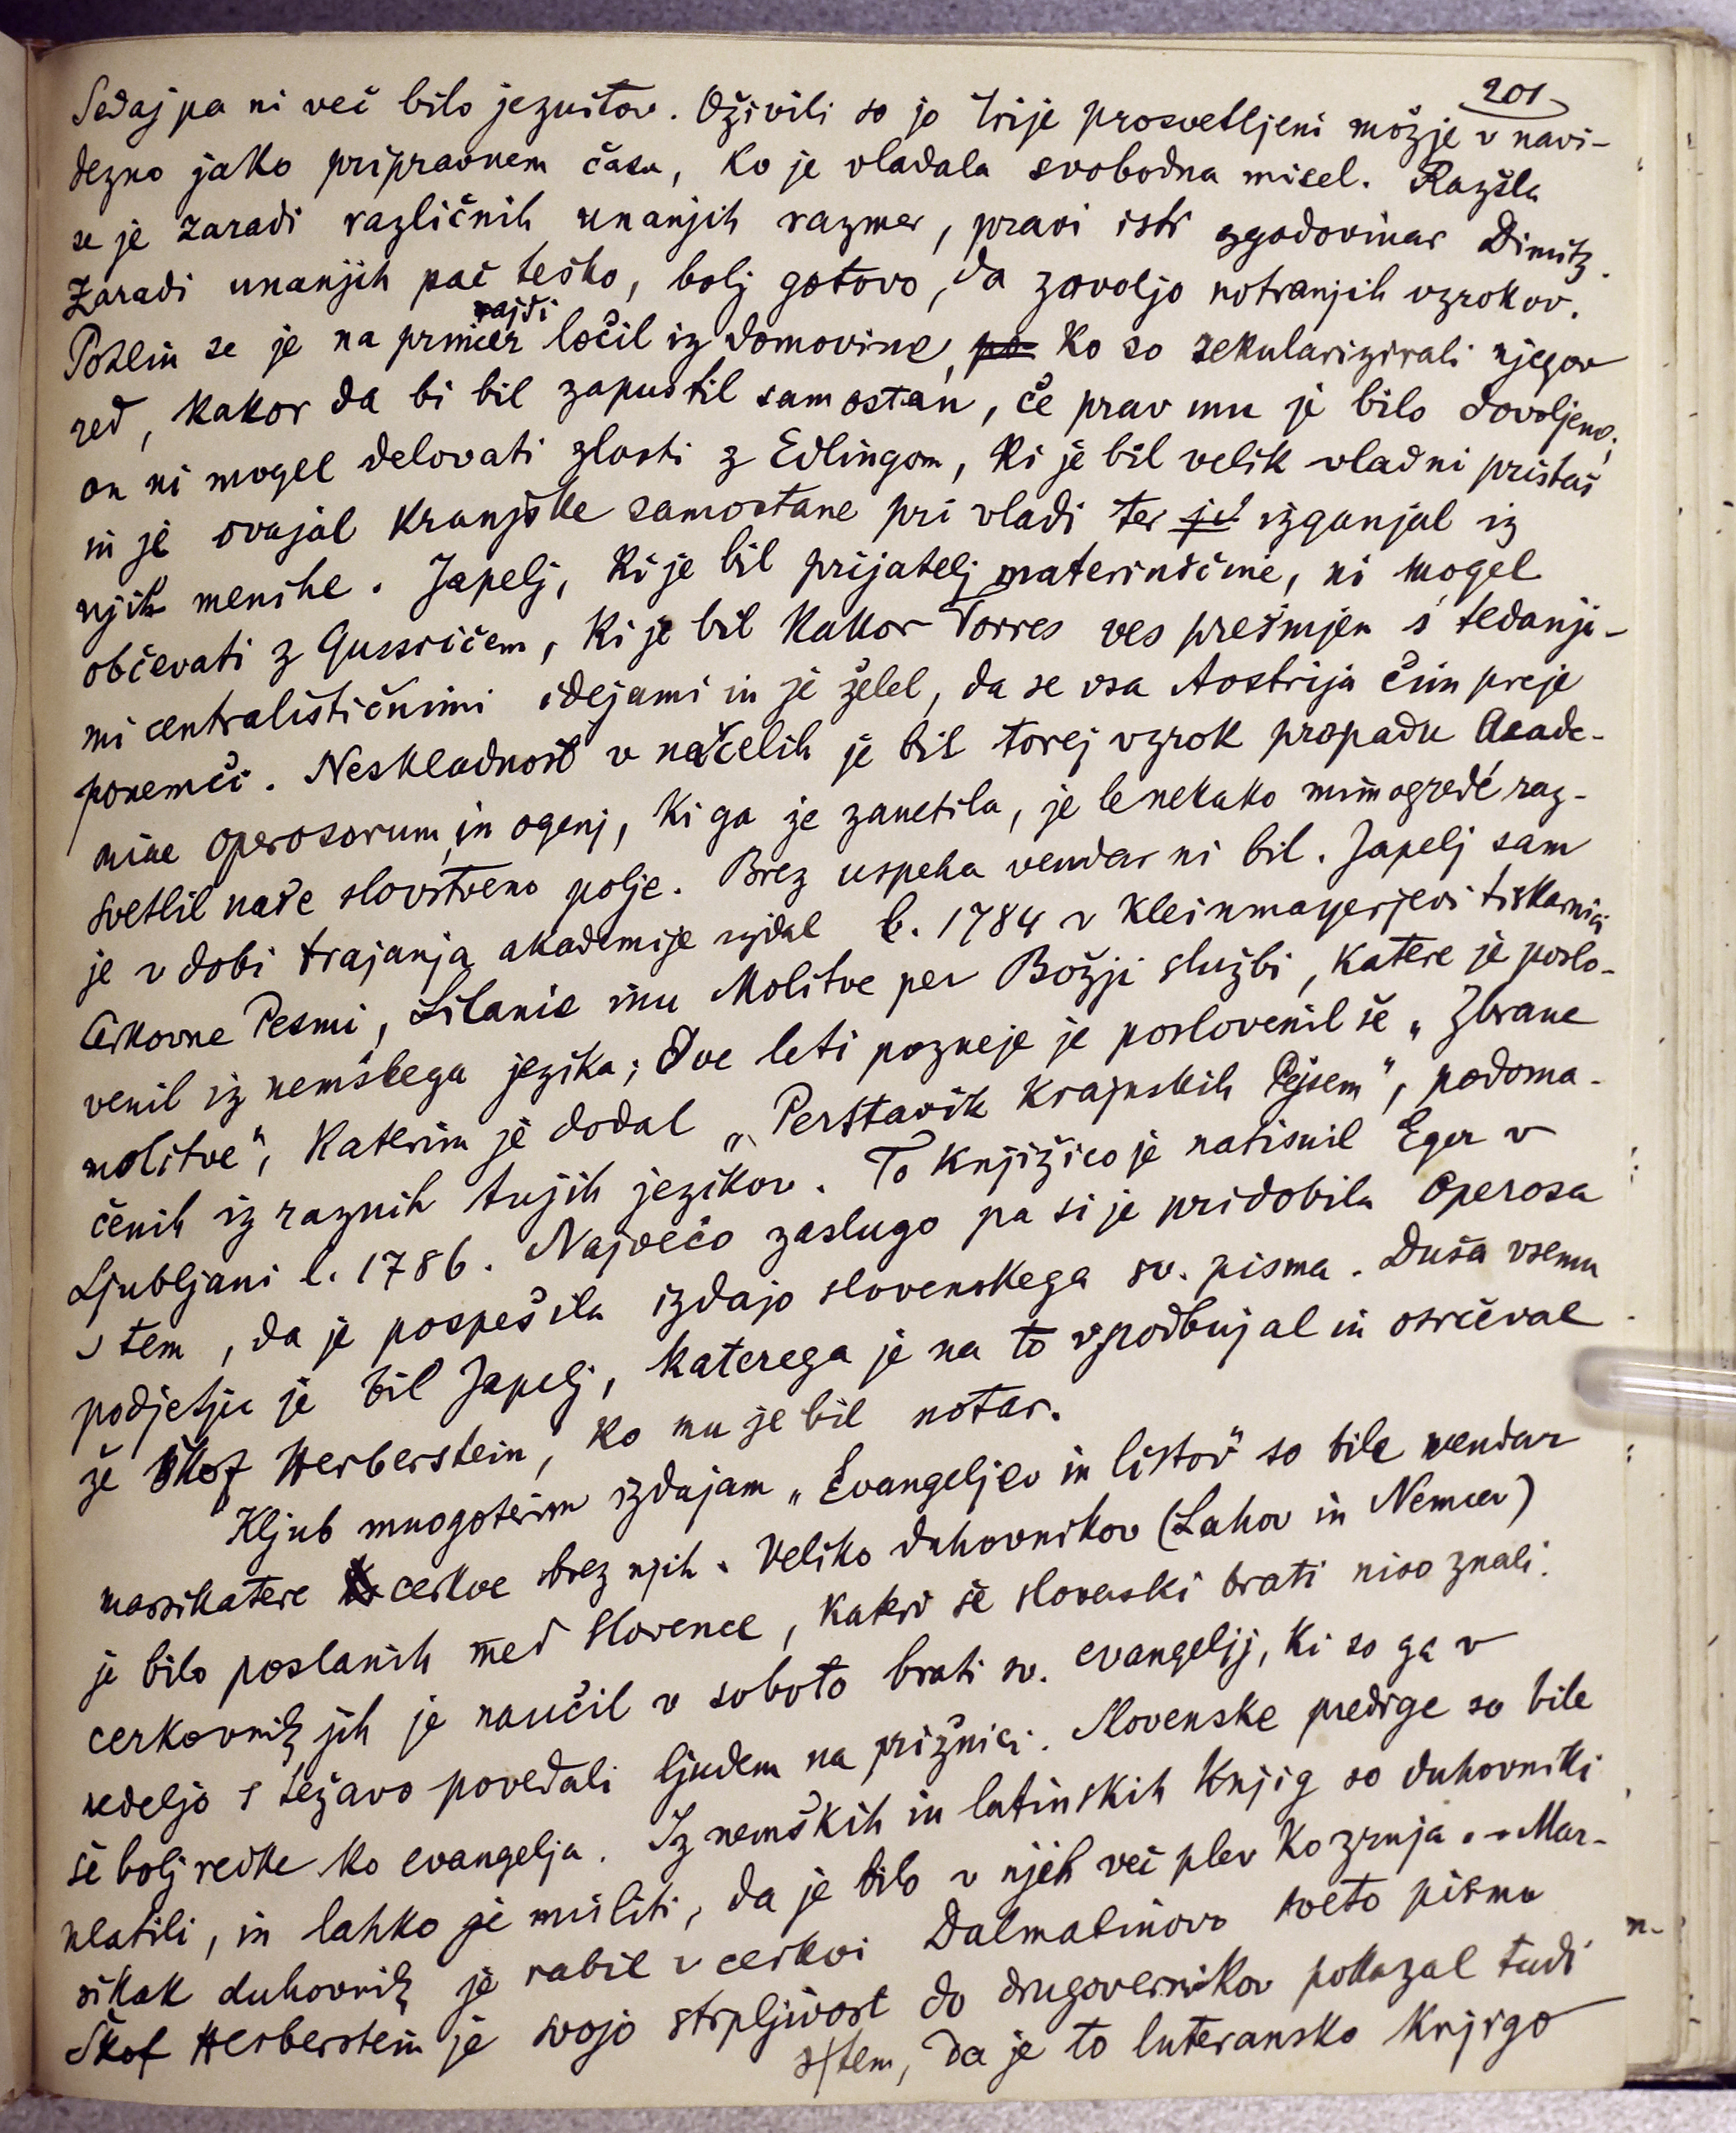 201
Sedaj pa ni več bilo jezuitov. Oživili so jo trije prosvetljeni možje v navi-
dezno jako pripravnem času, ko je vladala svobodna misel. Razšla
se je zaradi različnih unanjih razmer, pravi isti zgodovinar Dimitz.
Zaradi unanjih pač teško, bolj gotovo, da zavoljo notranjih vzrokov.
rajši
Pohlin se je na primer ločil iz domovine, po ko so sekularizirali njegov
red, kakor da bi bil zapustil samostan, če prav mu je bilo dovoljeno;
on ni mogel delovati zlasti z Edlingom, ki je bil velik vladni pristaš
in je ovajal kranjske samostane pri vladi ter je izganjal iz
njih menihe. Japelj, ki je bil prijatelj materinščine, ni mogel
občevati z Gussičem, ki je bil kakor Torres ves prešinjen s tedanji-
mi centralističnimi idejami in je želel, da se vsa Avstrija čim preje
ponemči. Neskladnost v načelih je bil torej vzrok propadu Acade-
miae operosorum, in ogenj, ki ga je zanetila, je le nekako mimogredé raz-
svetlil naše slovstveno polje. Brez uspeha vendar ni bil. Japelj sam
je v dobi trajanja akademije izdal l. 1784 v Kleinmayerjevi tiskarnici
Cirkovne Pesmi, Litanie inu Molitve per Božji službi, katere je poslo-
venil iz nemškega jezika; dve leti pozneje je poslovenil še „Zbrane
molitve“, katerim je dodal „Perstavik krajnskih Pejsem“, podoma-
čenih iz raznih tujih jezikov. To knjižico je natisnil Eger v
Ljubljani l. 1786. Največo zaslugo pa si je pridobila Operosa
s tem, da je pospešila izdajo slovenskega sv. pisma. Duša vsemu
podjetju je bil Japelj, katerega je na to vzpodbujal in osrčeval
že škof Herberstein, ko mu je bil notar.
Kljub mnogoterim izdajam „Evangeljev in listov“ so bile vendar
marsikatere cerkve brez njih. Veliko duhovnikov (Lahov in Nemcev)
je bilo poslanih med Slovence, kateri še slovenski brati niso znali.
cerkovnik jih je naučil v soboto brati sv. evangelij, ki so ga v
nedeljo s težavo povedali ljudem na prižnici. Slovenske predige so bile
še bolj redke ko evangelja. Iz nemških in latinskih knjig so duhovniki
mlatili, in lahko je misliti, da je bilo v njih več plev ko zrnja. – Mar-
sikak duhovnik je rabil v cerkvi Dalmatinovo sveto pismo
Škof Herberstein je svojo strpljivost do drugovernikov pokazal tudi
s tem, da je to luteransko knjigo